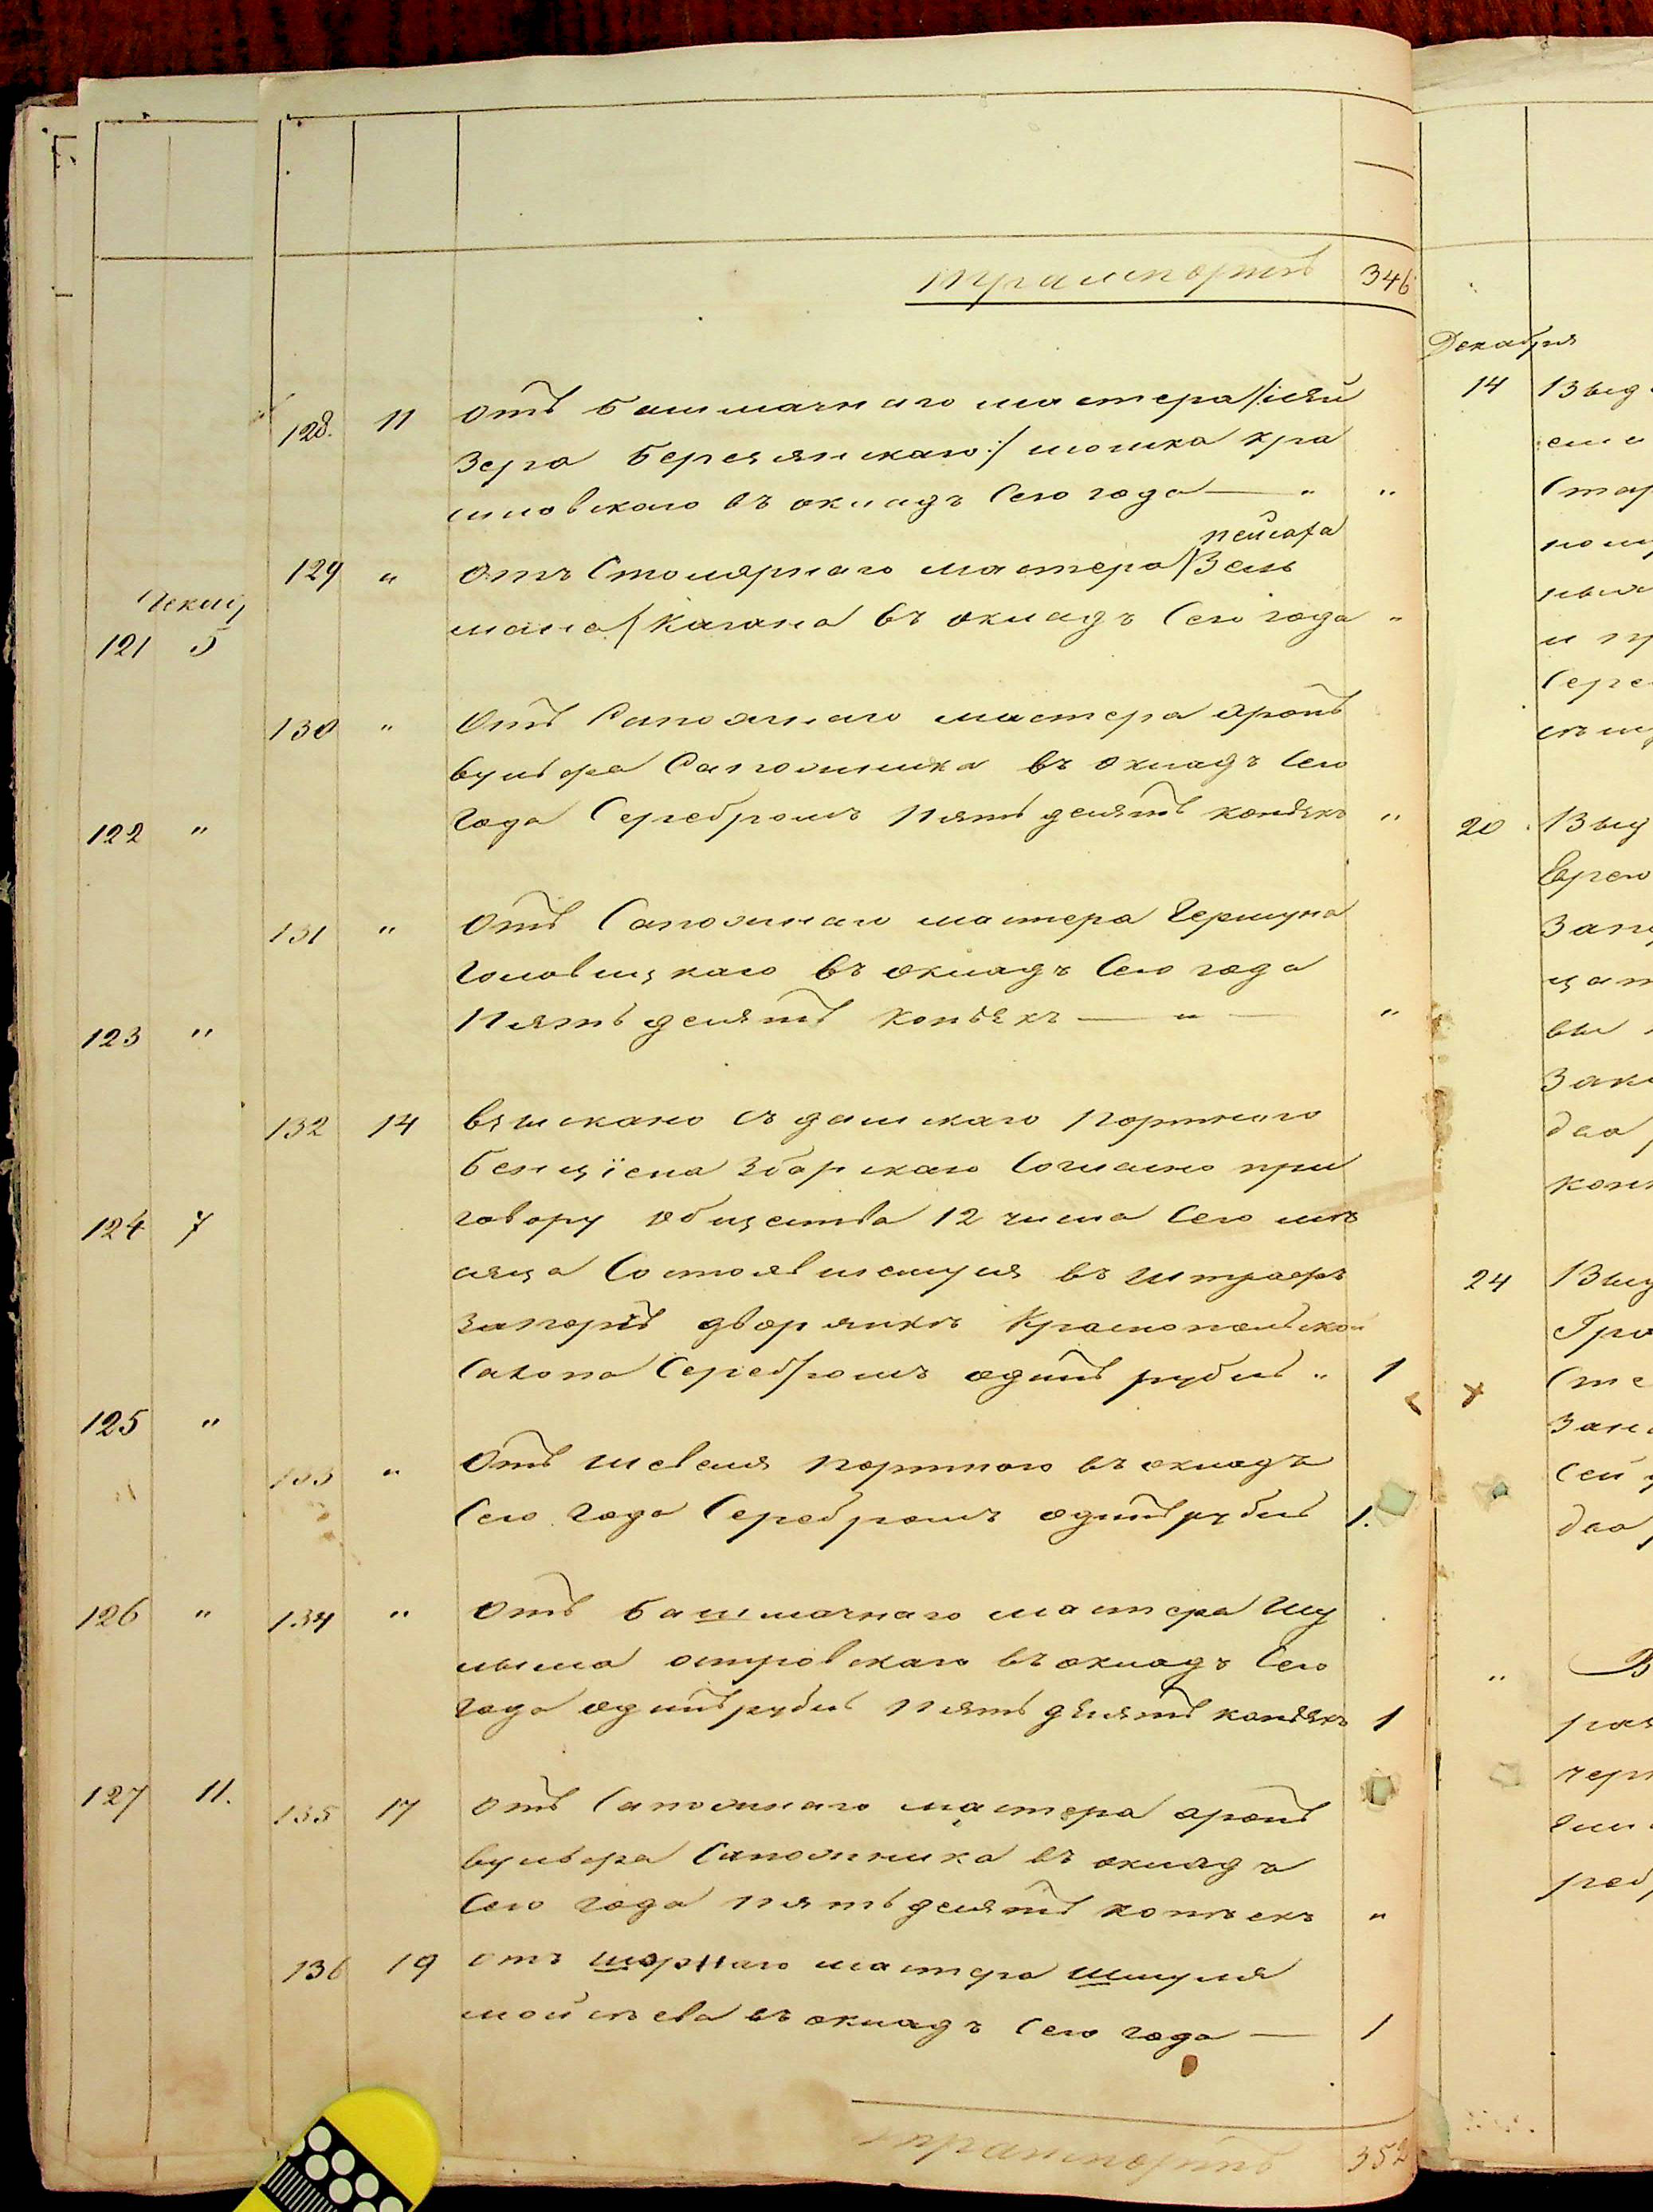 транспортъ 346
128. 11 отъ башмачнаго мастера /:лей
зера Березянскаго:/ мошка кра
сновскаго въ окладъ сего года — " "
пейсаха
129 " отъ столярнаго мастера / Зель
мана / Кагана въ окладъ сего года "
130 " Отъ Сапожнаго мастера аронъ
вульфа Сапожника въ окладъ сего
года Серебромъ пятьдесятъ копѣекъ "
131 " отъ Сапожнаго мастера Гершуна
Головицкаго въ окладъ сего года
пятьдесятъ копѣекъ — " — "
132 14 взыскано съ дамскаго портнаго
бенціена Зборскаго согласно при
говору общества 12 числа сего мѣ
сяца состоявшемуся въ штрафъ
дворянкѣ Краснопольской
Серебромъ одинъ рубль " 1
133 " Отъ шевеля портного въ окладъ
сего года Серебромъ одинъ рубль 1.
134 " Отъ башмачнаго мастера шу
лыма островскаго въ окладъ сего
года одинъ рубль пятьдѣсятъ копѣекъ 1
135 17 отъ Сапожнаго мастера аронъ
вульфа Сапожника въ окладъ
сего года пятьдесятъ копѣекъ "
136 19 отъ шорнаго мастера шмуля
мойсѣева въ окладъ сего года — 1
транспортъ 352
121 5
122 "
123 "
124 7
125 "
126 "
127 11.
Декабря
14 Выд
Стар
Сере
20 Выд
24 Выд
"